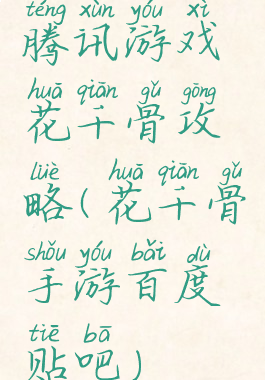 téng xùn yóu xì
腾讯游戏
huā qiān gǔ gōng
花千骨攻
lüè huā qiān gǔ
略(花千骨
shǒu yóu bǎi dù
手游百度
tiē bā
贴吧)